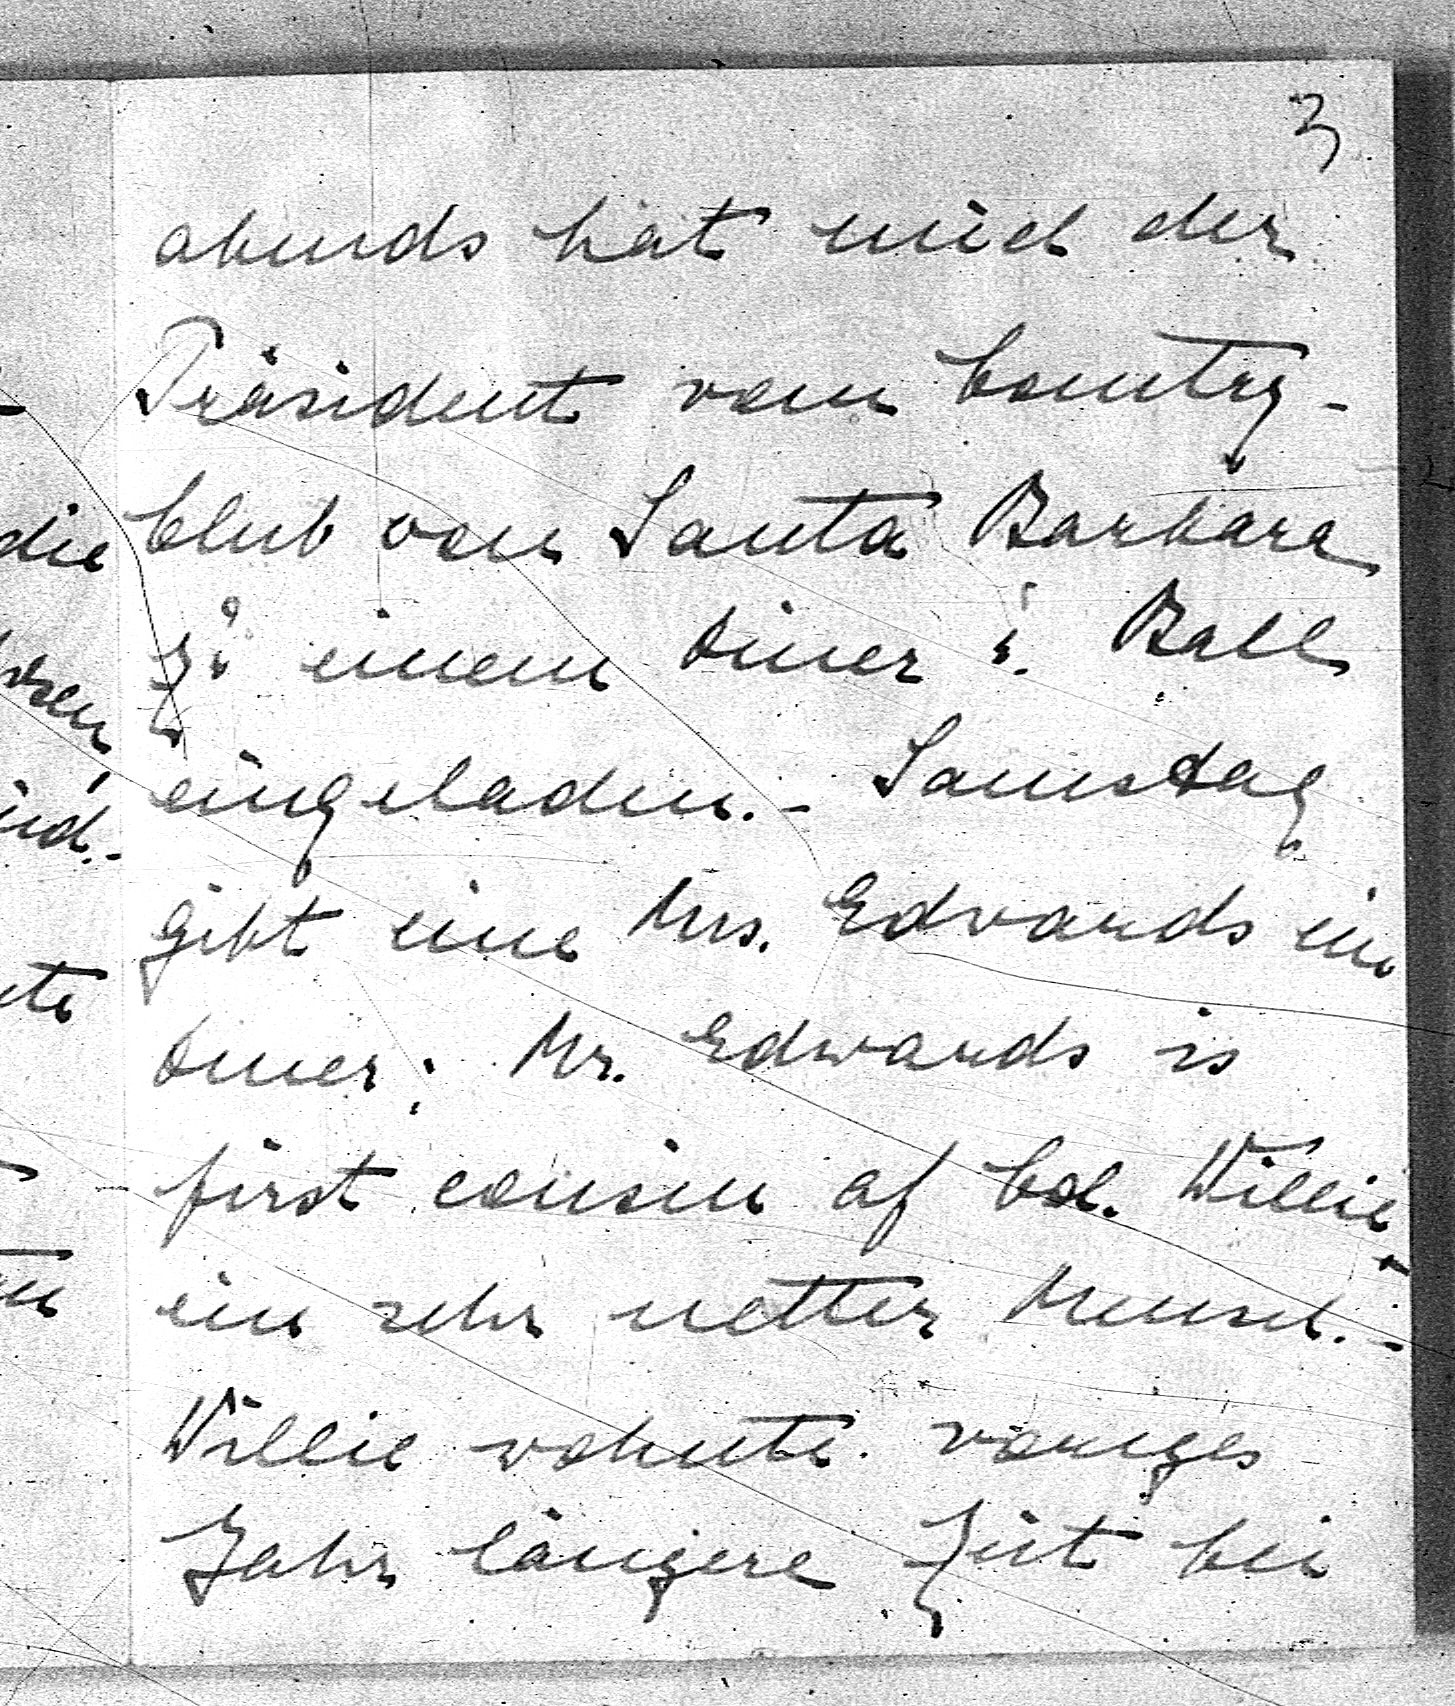 3
abends hat mich der
Präsident vom Country-
Club von Santa Barbara
zu einem Diner u. Ball
eingeladen. - Samstag
gibt eine Mrs. Edvards ein
Diner; Mr. Edwards is
first cousin of Col. Willie
ein sehr netter Mensch. -
Willie wohnte voriges
Jahr längere Zeit bei
die